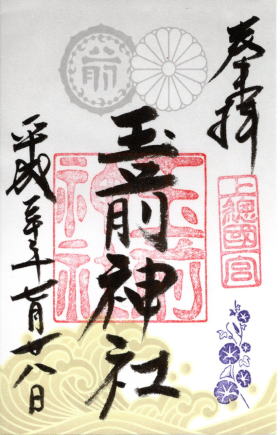 奉拝
上總國一宮
玉前神社
玉前神社
前
平成二十七年七月廿八日